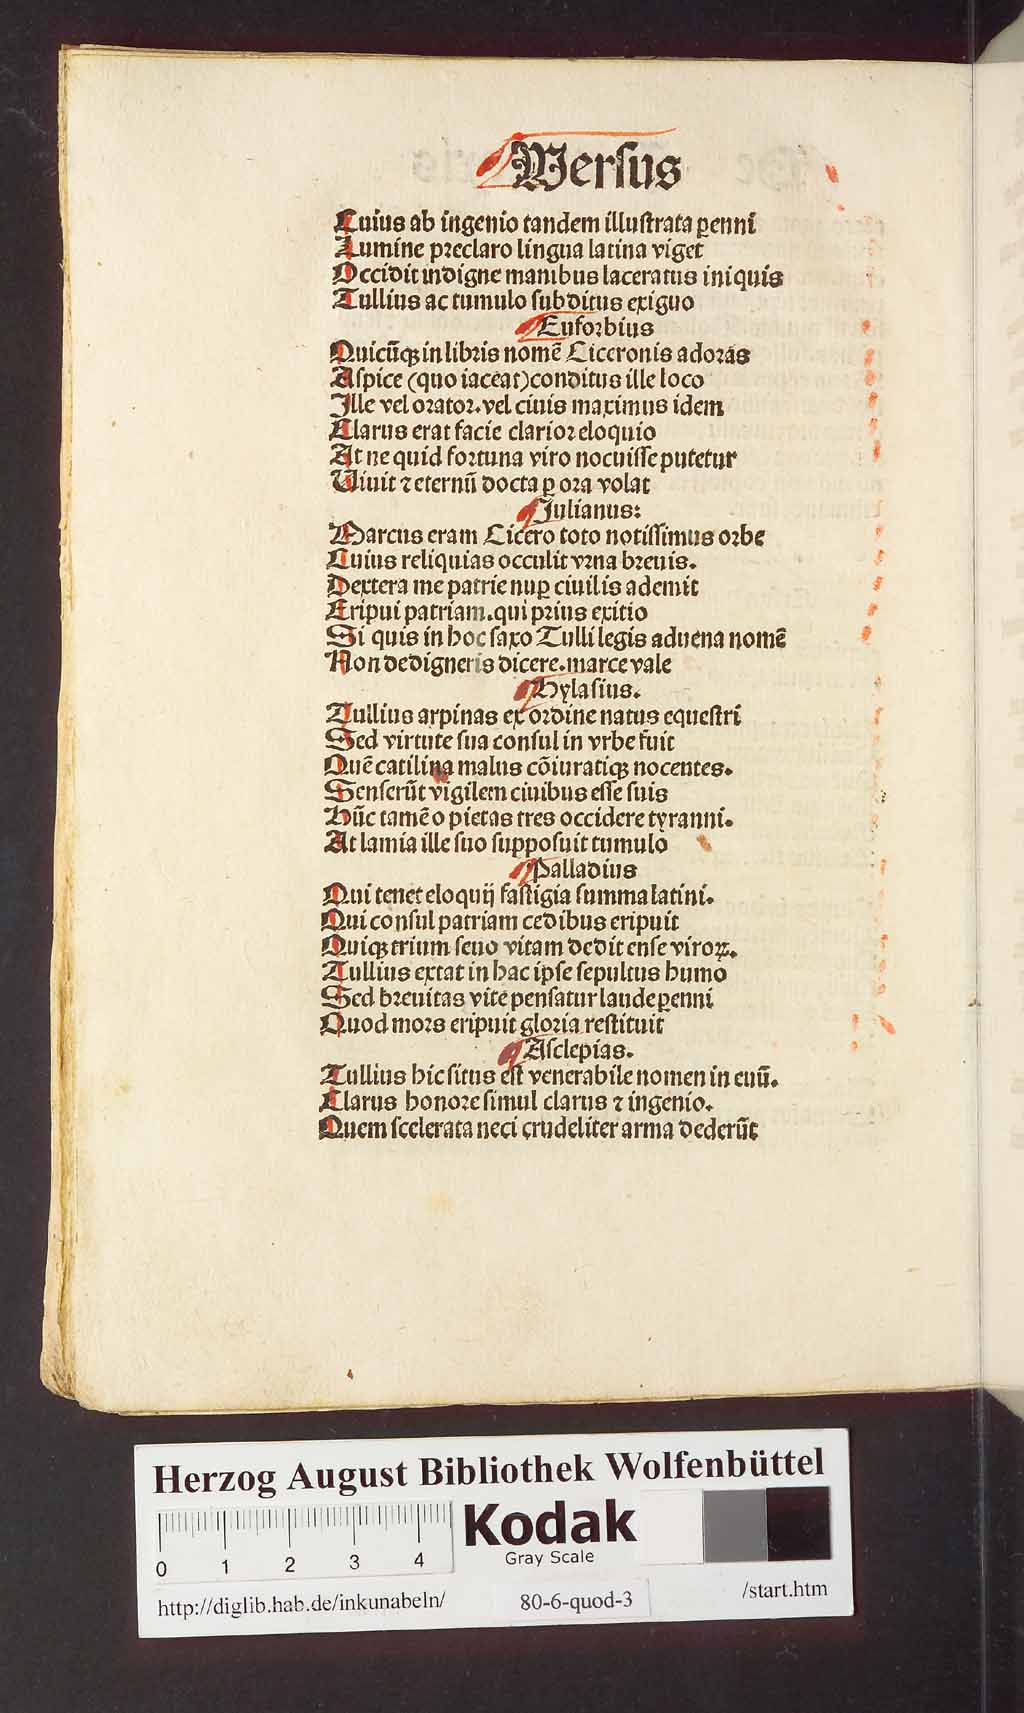 Versus
Cuius ab ingenio tandem illustrata ꝑenni
Lumine preclaro lingua latina viget
Occidit indigne manibus laceratus iniquis
Tullius ac tumulo subditus exiguo
Euforbius
Quicūqꝫ in libris nomē Ciceronis adoras
Aspice (quo iaceat) conditus ille loco
Ille vel orator. vel ciuis maximus idem
Clarus erat facie clarior eloquio
At ne quid fortuna viro nocuisse putetur
Uiuit ⁊ eternū docta ꝑ ora volat
Julianus:
Marcus eram Cicero toto notissimus orbe
Cuius reliquias occulit vrna breuis.
Dextera me patrie nuꝑ ciuilis ademit
Eripui patriam. qui prius exitio
Si quis in hoc saxo Tulli legis aduena nomē
Non dedigneris dicere. marce vale
Hylasius.
Tullius arpinas ex ordine natus equestri
Sed virtute sua consul in vrbe fuit
Quē catilina malus cōiuratiqꝫ nocentes.
Senserūt vigilem ciuibus esse suis
Hūc tamē o pietas tres occidere tyranni.
At lamia ille suo supposuit tumulo
Palladius
Qui tenet eloquij fastigia summa latini.
Qui consul patriam cedibus eripuit
Quiqꝫ trium seuo vitam dedit ense viroꝝ.
Tullius extat in hac ipse sepultus humo
Sed breuitas vite pensatur laude ꝑenni
Quod mors eripuit gloria restituit
Asclepias.
Tullius hic situs est venerabile nomen in euū.
Clarus honore simul clarus ⁊ ingenio.
Quem scelerata neci crudeliter arma dederūt
Herzog August Bibliothek Wolfenbüttel
Kodak
Gray Scale
0 1 2 3 4
http://diglib.hab.de/inkunabeln/ 80-6-quod-3 /start.htm